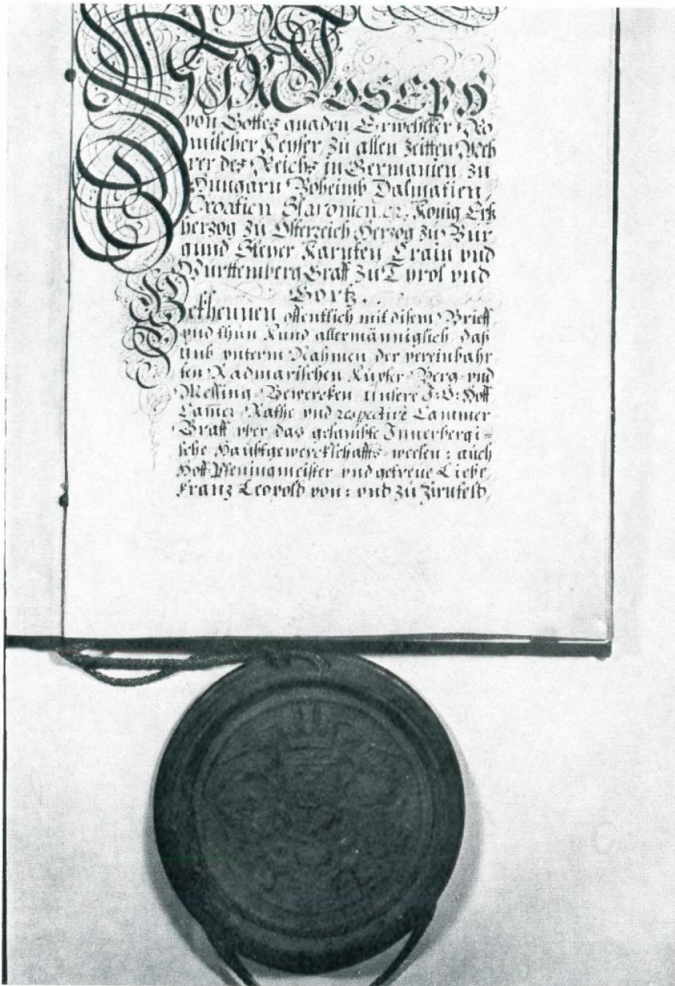 WIR JOSEPH
von Gottes gnaden Erwehlter Rö
mischer Keyser zu allen Zeitten Meh
rer des Reichs in Germanien, zu
Hungarn Boheimb Dalmatien,
Croatien Slavonien &c. König Ertz
herzog zu Österreich Herzog zu Bur
gund Steyer Kärnten Crain und
Württemberg Graff zu Tyrol und
Görtz.
Bekhennen öffentlich mit disem Brieff
und thun kund allermänniglich, daß
unß unterm Nahmen der vereinbahr
ten Radmärischen Kupfer-Berg- und
Messing-Bewercken Unsere I: Ö: Hoff
Camer Räthe und respective Cammer
Graff über das gesambte Innerbergi=
sche Haubtgewerckschaffts-weesen: auch
Hoff Pfeningmeister und getreue Liebe
Franz Leopold von: und zu Zirnfeld,